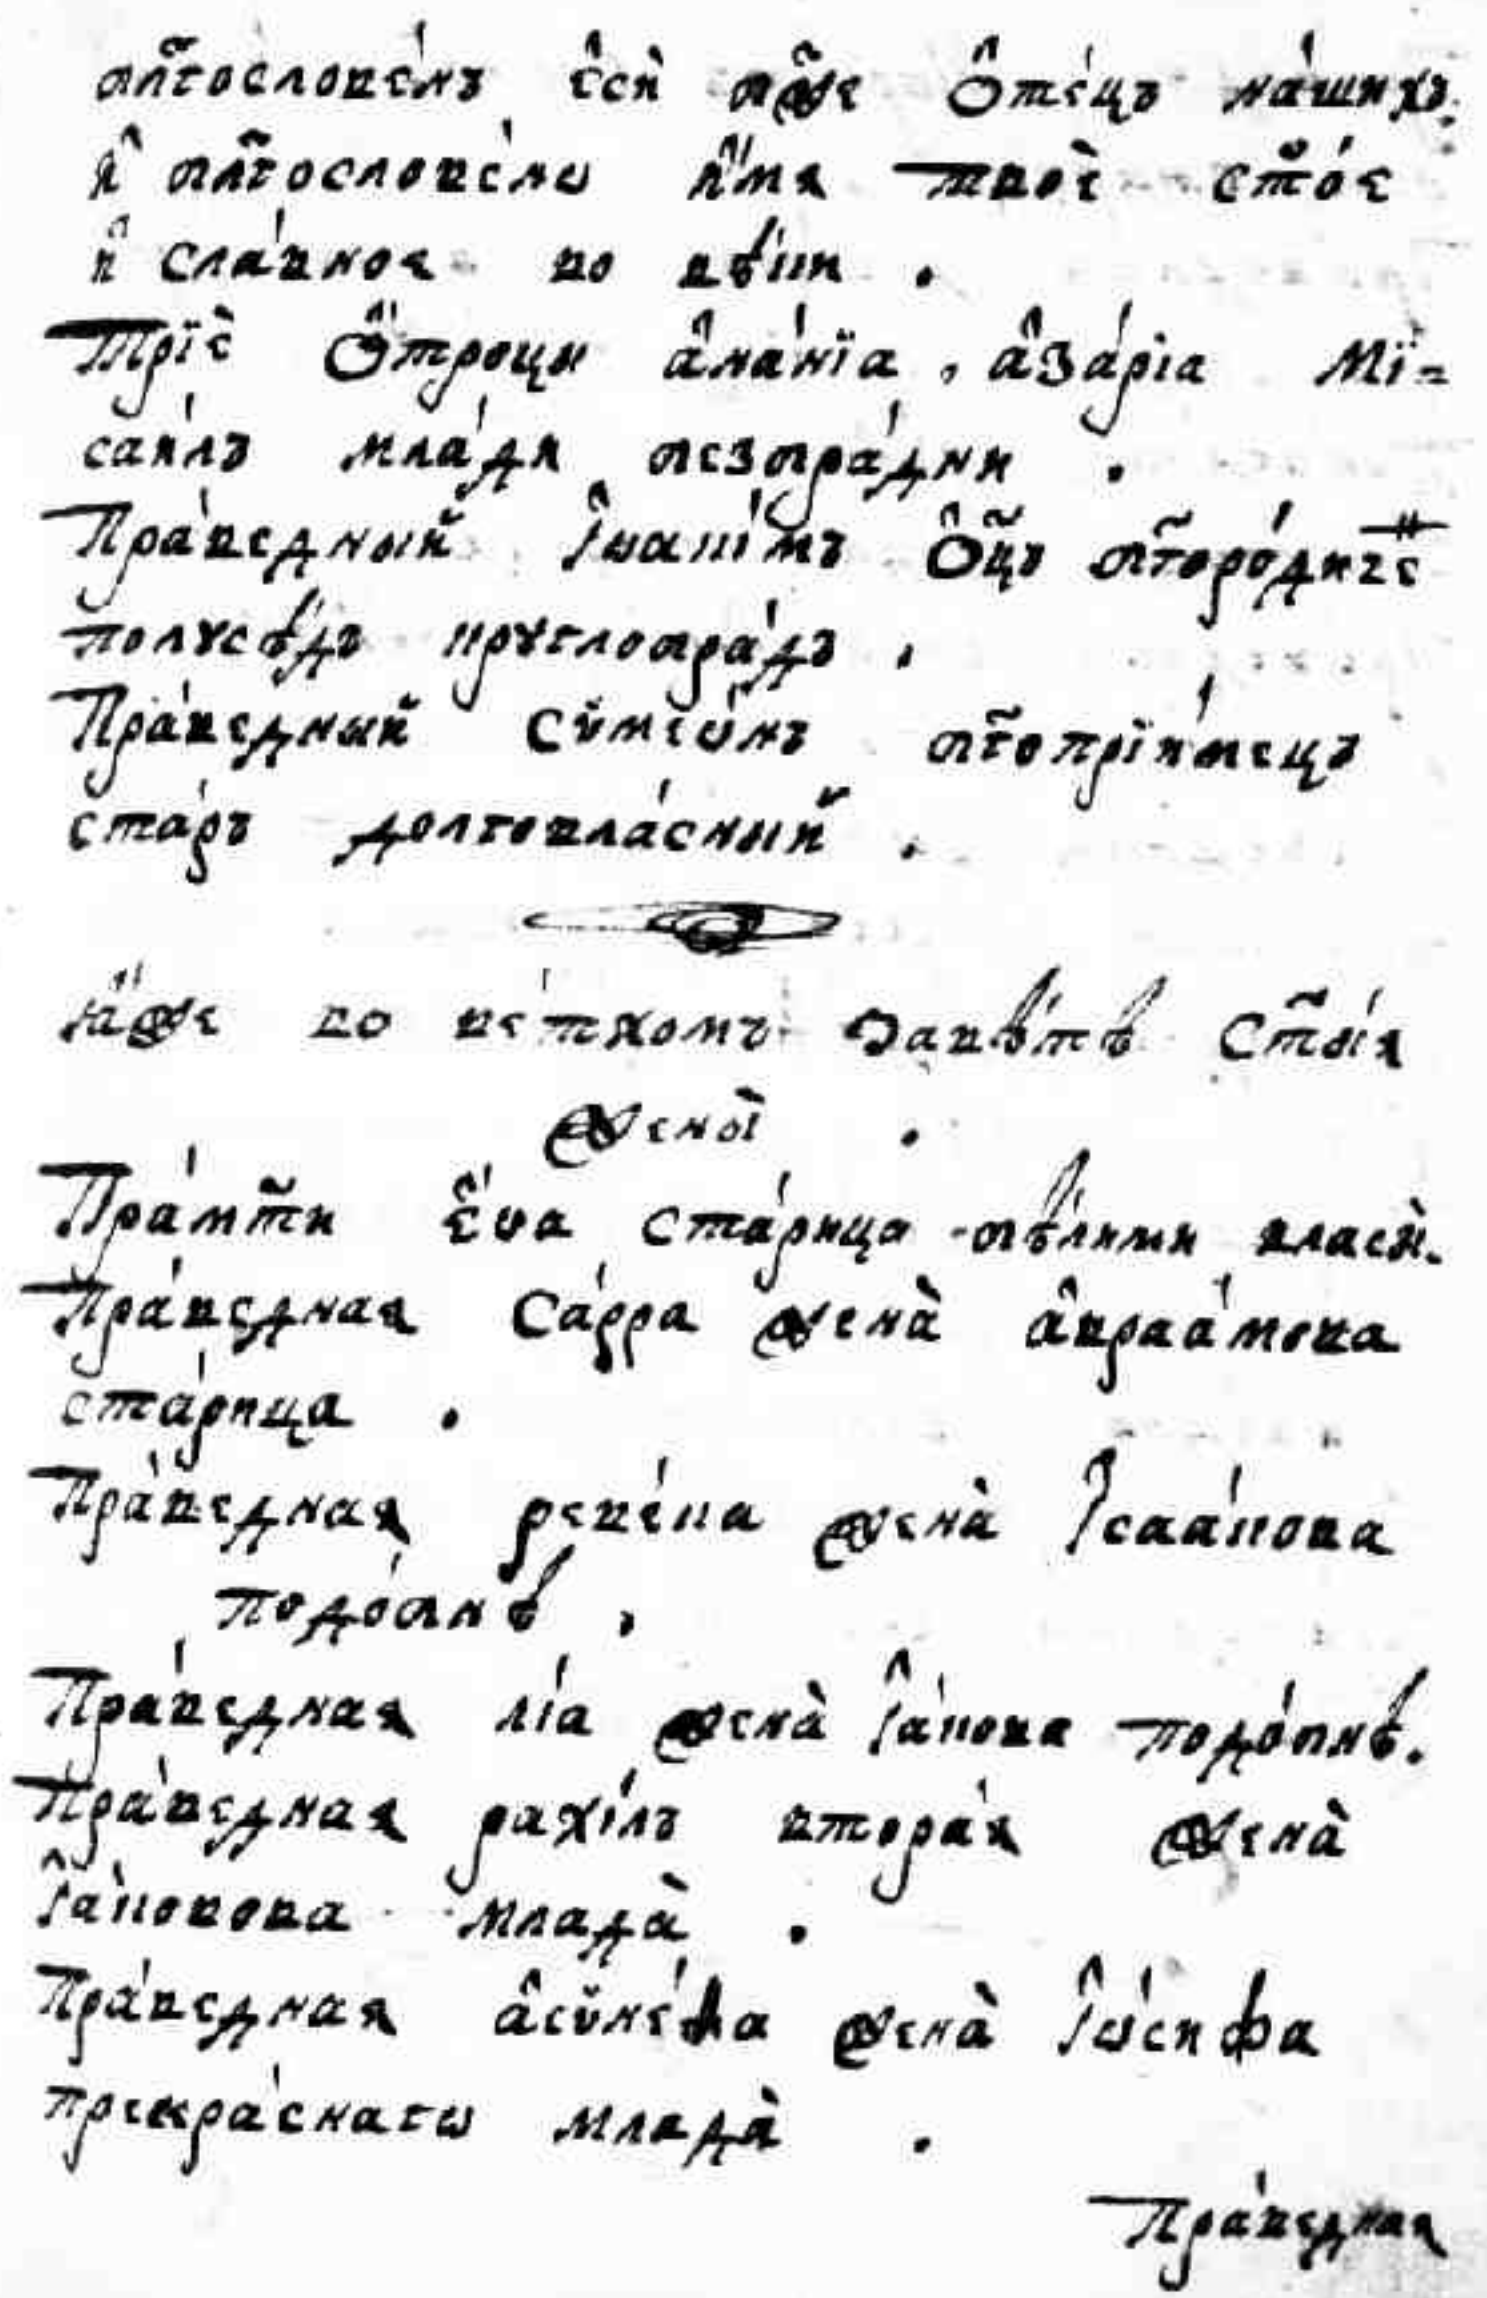 бл҃гословє́нъ є҆сѝ бж҃е ѻ҆тє́цъ на́шихъ.
и҆ бл҃гословє́нѡ и҆́мя твоѐ ст҃о́є
и҆ сла́вноє во вѣ́ки .
Трїѐ ѻ҆́троцы а҆на́нїа , а҆за́рїа Мї-
саи́лъ мла́ди безбра́дни .
Пра́ведный І҆ѡакі́мъ ѻ҆ц҃ъ бг҃оро́дичє
полꙋсѣ́дъ крꙋглобра́дъ .
Пра́ведный Сѷмеѡ́нъ бг҃опрїи́мецъ
ста́ръ долговла́сный .
ꙗ҆́же во ве́тхомъ Завѣ́тѣ Ст҃ы́я
жены̀ .
Пра́мт҃и є҆́ѵа ста́рица бѣ́лыми власы̀.
Пра́ведная Са́рра жена̀ а҆враа́мова
ста́рица .
Пра́ведная реве́ка жена̀ І҆саа́кова
подо́бнѣ .
Пра́ведная лі́а жена̀ І҆а́кова подо́бнѣ.
Пра́ведная рахи́ль втора́я жена̀
І҆а́ковова млада̀ .
Пра́ведная а҆сѷне́ѳа жена̀ І҆ѡ́сифа
прекра́снагѡ млада̀ .
Пра́ведная